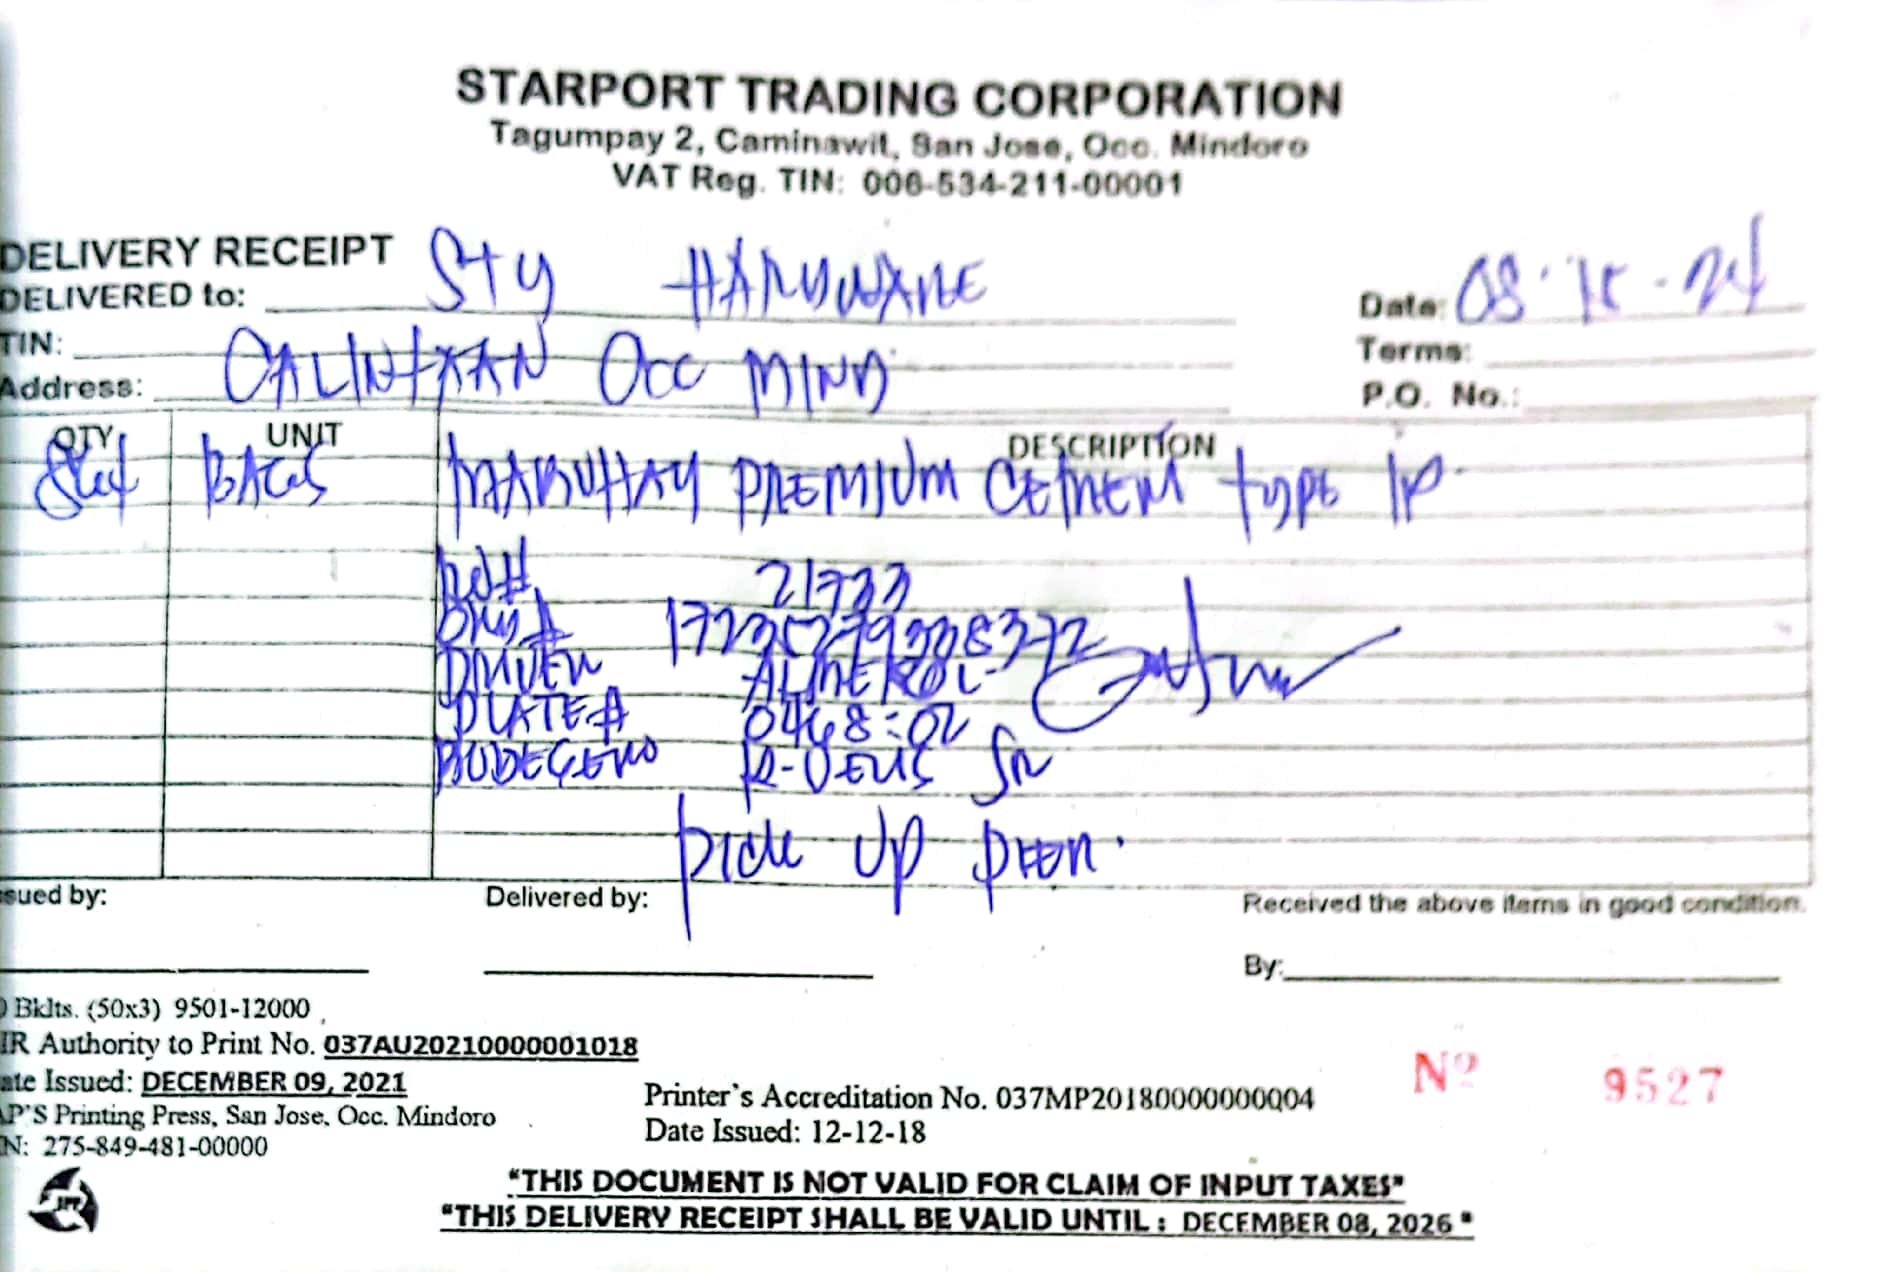 STARPORT TRADING CORPORATION
Tagumpay 2, Caminawit, San Jose, Occ. Mindoro
VAT Reg. TIN: 006-534-211-00001
DELIVERY RECEIPT
DELIVERED to: STY HARDWARE
Date: 08-15-24
TIN:
Terms:
Address: CALINTAAN OCC MIND
P.O. No.:
QTY UNIT DESCRIPTION
BAGS MABUHAY PREMIUM CEMENT TYPE 1P
21733
DRIVER ALMEROL
PLATE# 0468-02
BODEGERO
PICK UP
sued by:
Delivered by:
Received the above items in good condition.
By:
Bklts. (50x3) 9501-12000
IR Authority to Print No. 037AU20210000001018
ate Issued: DECEMBER 09, 2021
P'S Printing Press, San Jose, Occ. Mindoro
N: 275-849-481-00000
Printer's Accreditation No. 037MP20180000000004
Date Issued: 12-12-18
Nº 9527
"THIS DOCUMENT IS NOT VALID FOR CLAIM OF INPUT TAXES"
"THIS DELIVERY RECEIPT SHALL BE VALID UNTIL : DECEMBER 08, 2026"